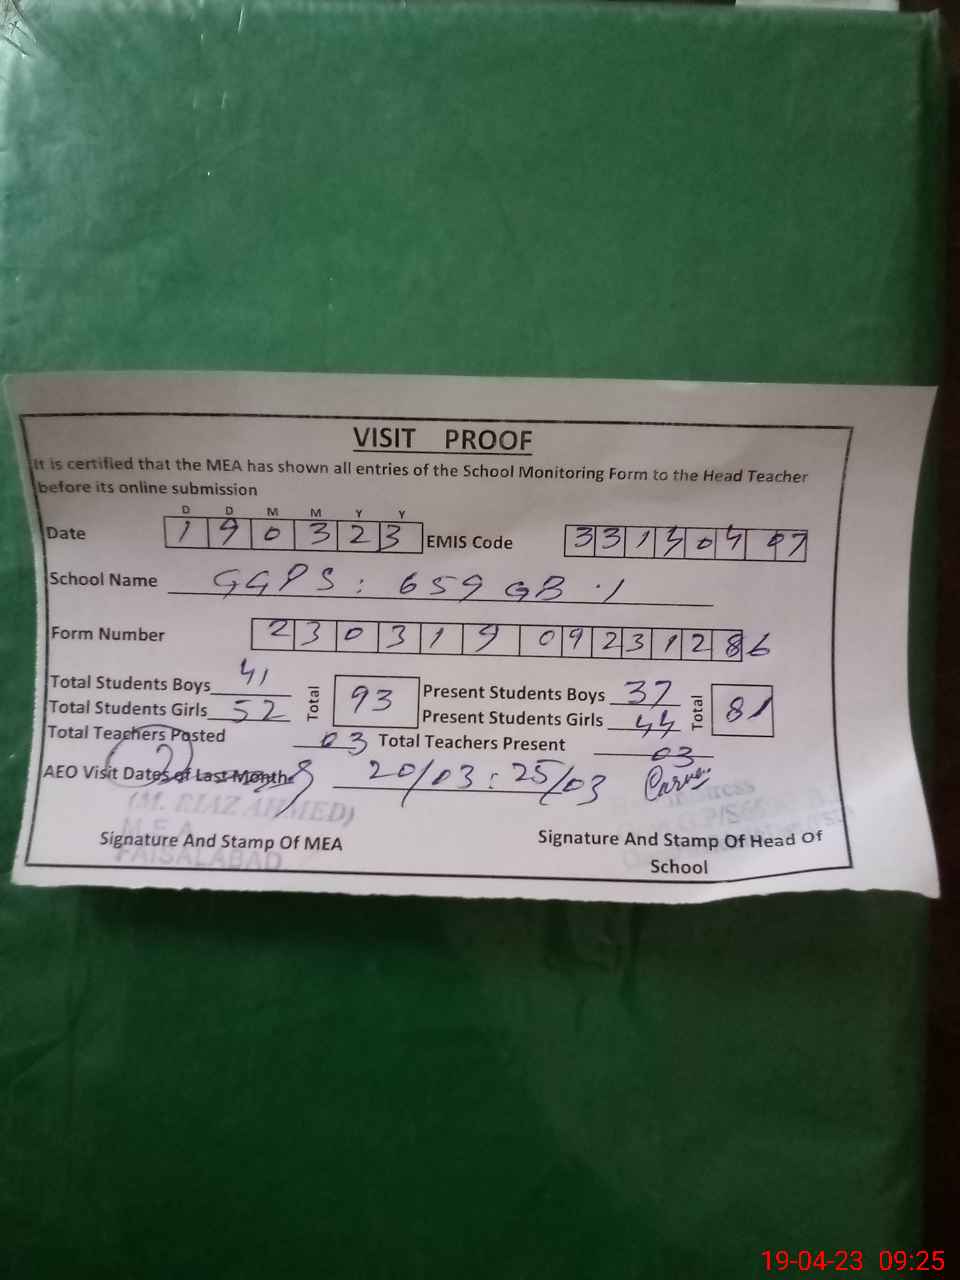 VISIT PROOF
It is certified that the MEA has shown all entries of the School Monitoring Form to the Head Teacher
before its online submission
D D M M Y Y
Date 190323 EMIS Code 33130407
School Name GGPS: 659 GB.1
Form Number 23031909231286
Total Students Boys 41 Total 93 Present Students Boys 37 Total 81
Total Students Girls 52 Present Students Girls 44
Total Teachers Posted 03 Total Teachers Present 03
AEO Visit Dates of Last Months 20/03 : 25/03
(M. RIAZ AHMED)
M.E.A
FAISALABAD
Signature And Stamp Of MEA Signature And Stamp Of Head Of
School
19-04-23 09:25